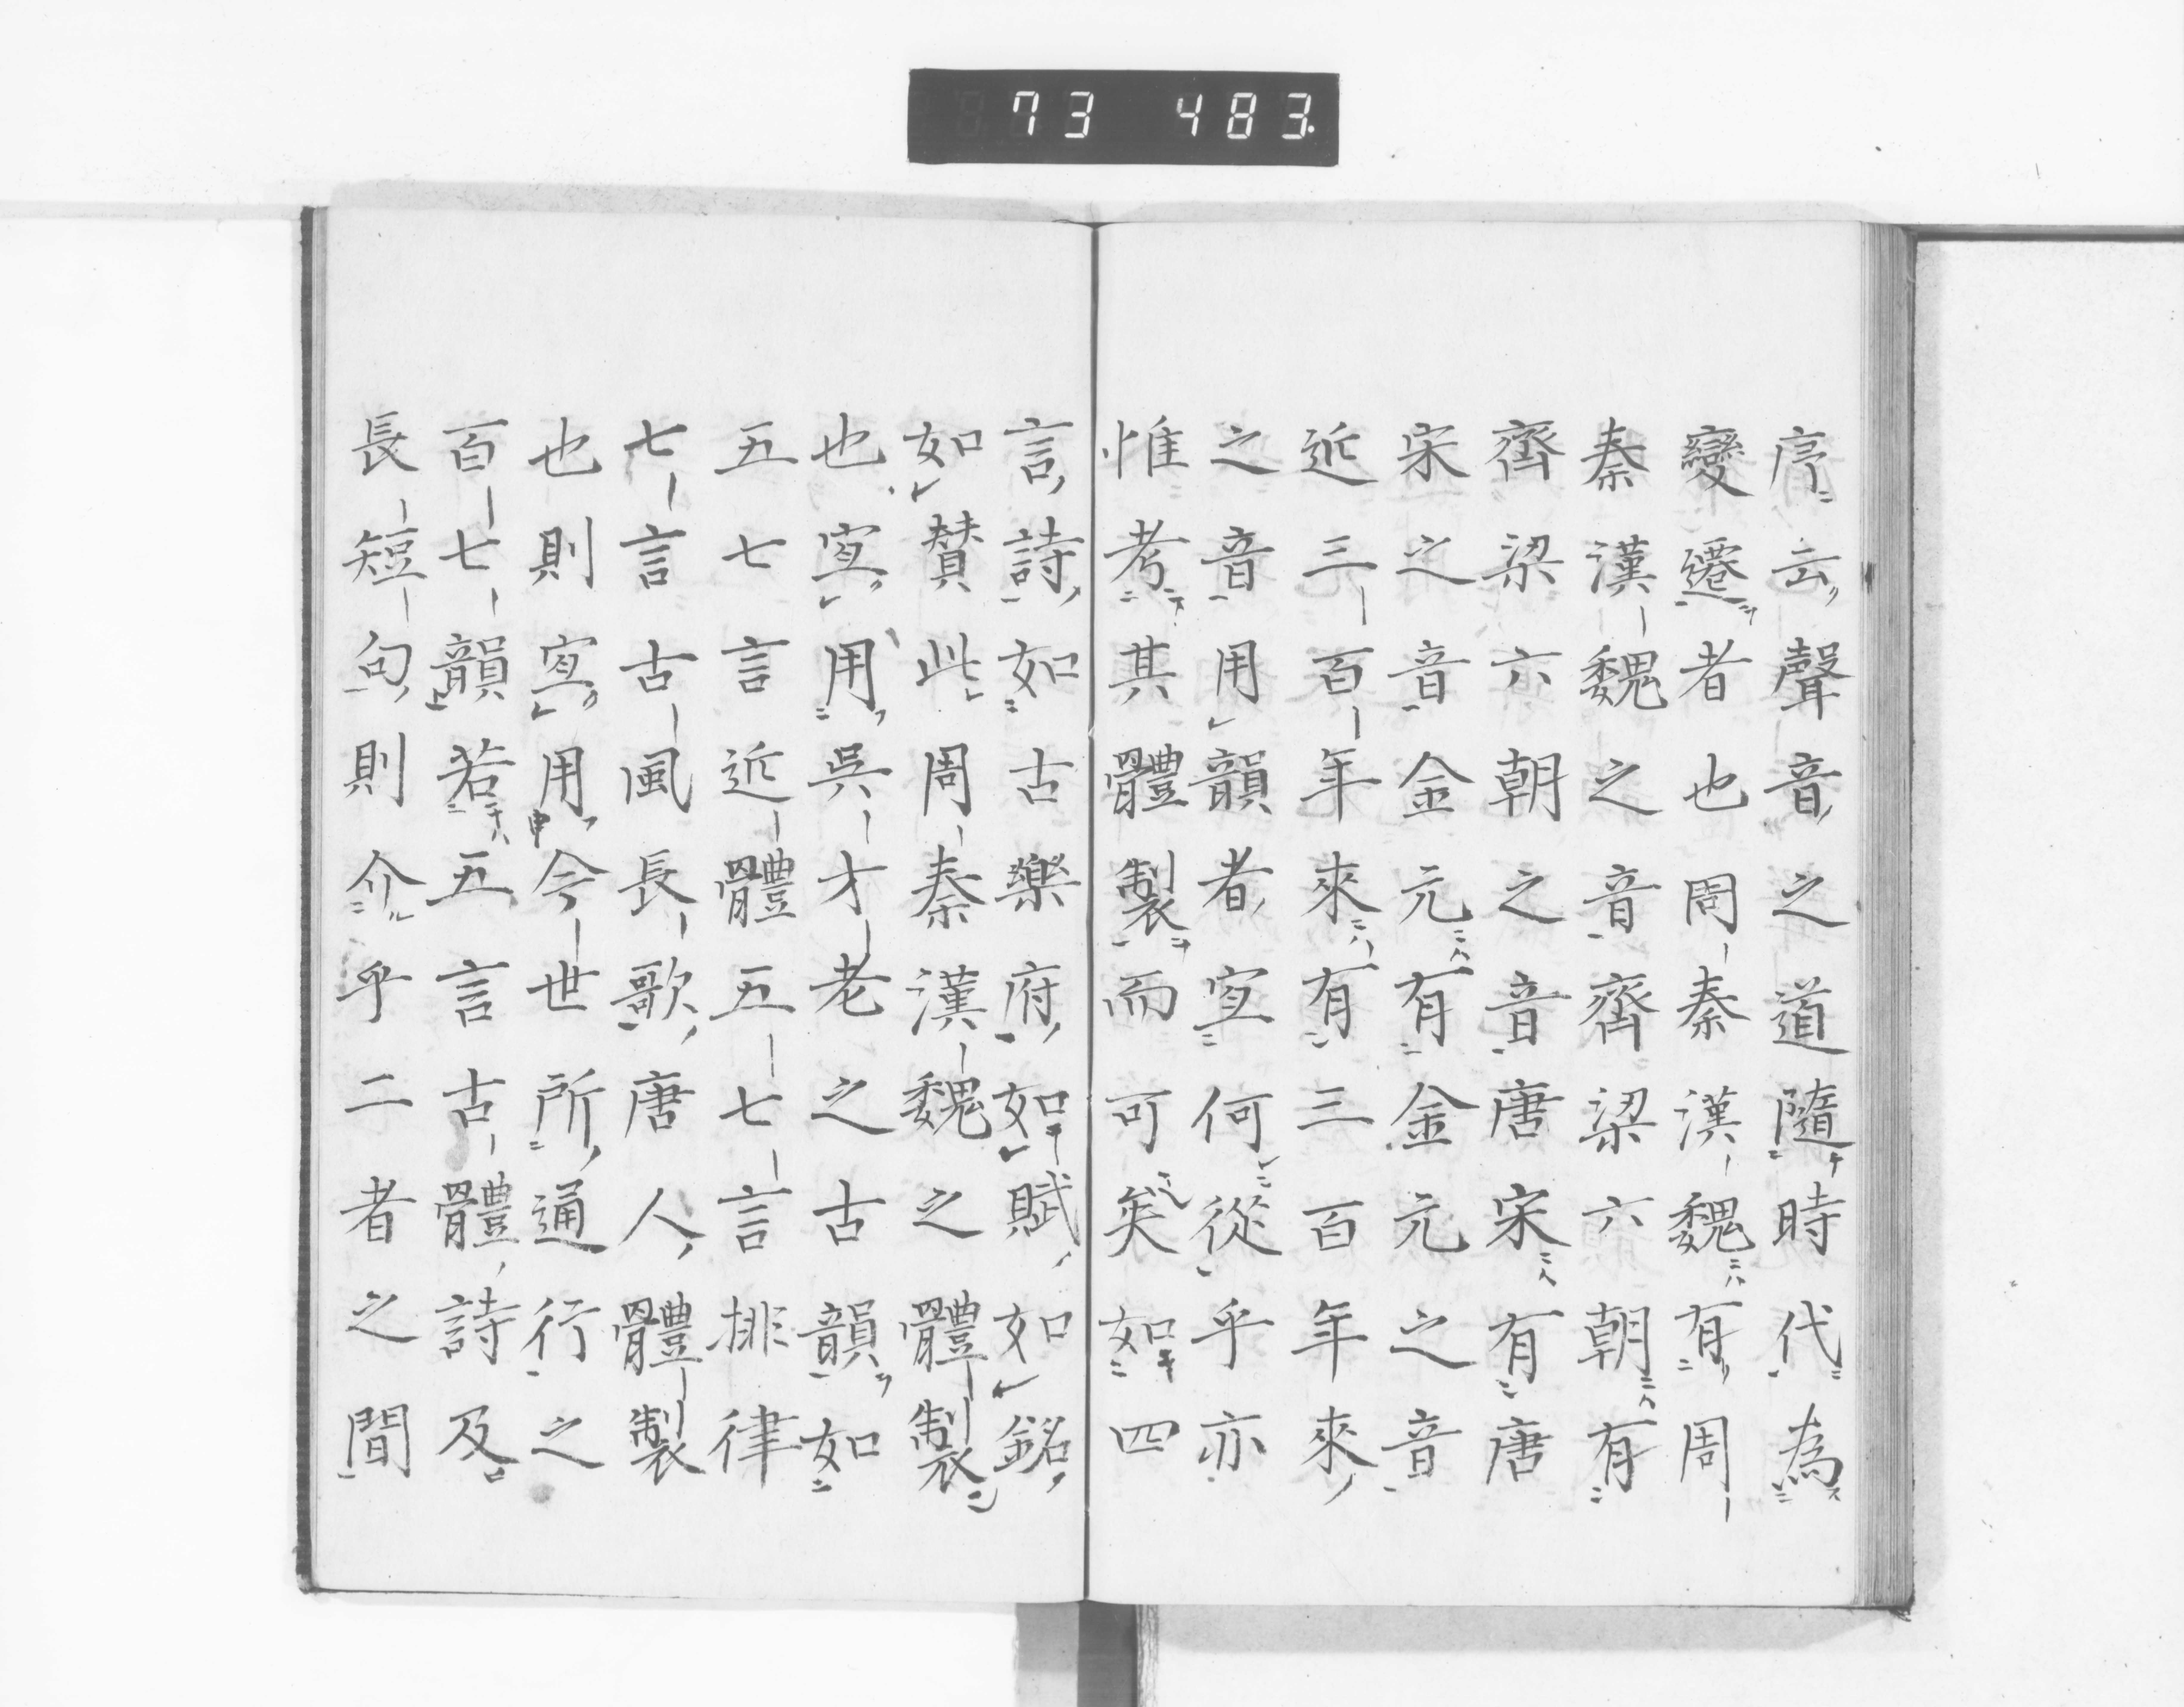 73 483
序云聲音之道隨時代為
變遷者也周秦漢魏有周
秦漢魏之音齊梁六朝有
齊梁六朝之音唐宋有唐
宋之音金元有金元之音
近三百年來有三百年來
之音用韻者宜何從乎亦
惟考其體製而可矣如四
言詩如古樂府如賦如銘
如賛此周秦漢魏之體製
也宜用吳才老之古韻如
五七言近體五七言排律
七言古風長歌唐人體製
也則宜用今世所通行之
百七韻若五言古體詩及
長短句則介乎二者之間